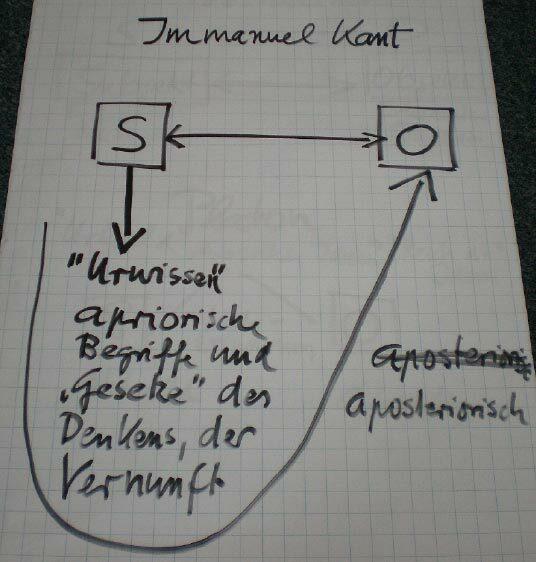 Immanuel Kant
S
O
"Urwissen"
apriorische
Begriffe und
„Gesetze" des
Denkens, der
Vernunft
aposteriorisch